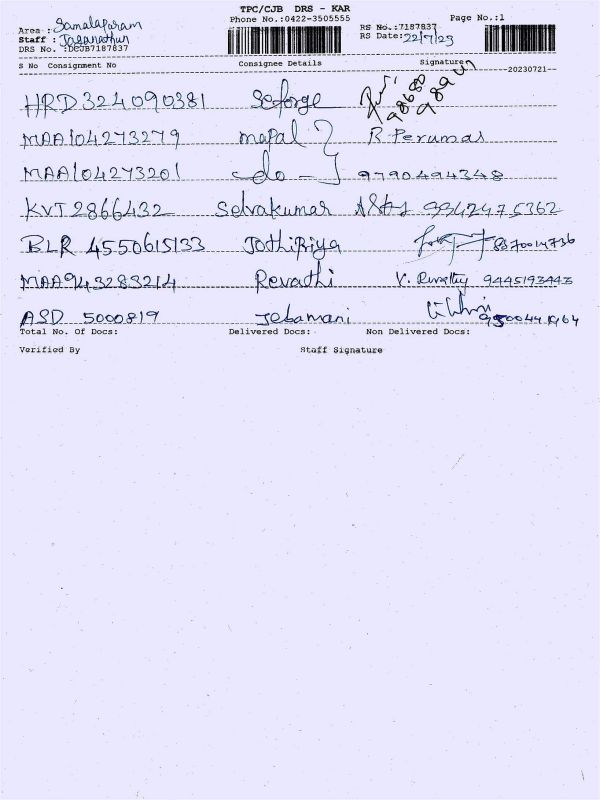 TPC/CJB DRS - KAR
Phone No.:0422-3505555
Page No.:1
Area : Samalapuram
RS No.:7187837
Staff : Jaganathan
RS Date:22/7/23
DRS No. :DCJB7187837
S No Consignment No Consignee Details Signature
20230721
HRD324090381
MAA104273279 mapal R. Perumal
MAA104273201 -do- 9790494348
KVT2866432 Selvakumar 9942475362
BLR 4550615133 Jothipiya
MAA943283214 Revathi V. Revathy 9445193443
ASD 5000819 Jebamani
Total No. Of Docs: Delivered Docs: Non Delivered Docs:
Verified By Staff Signature